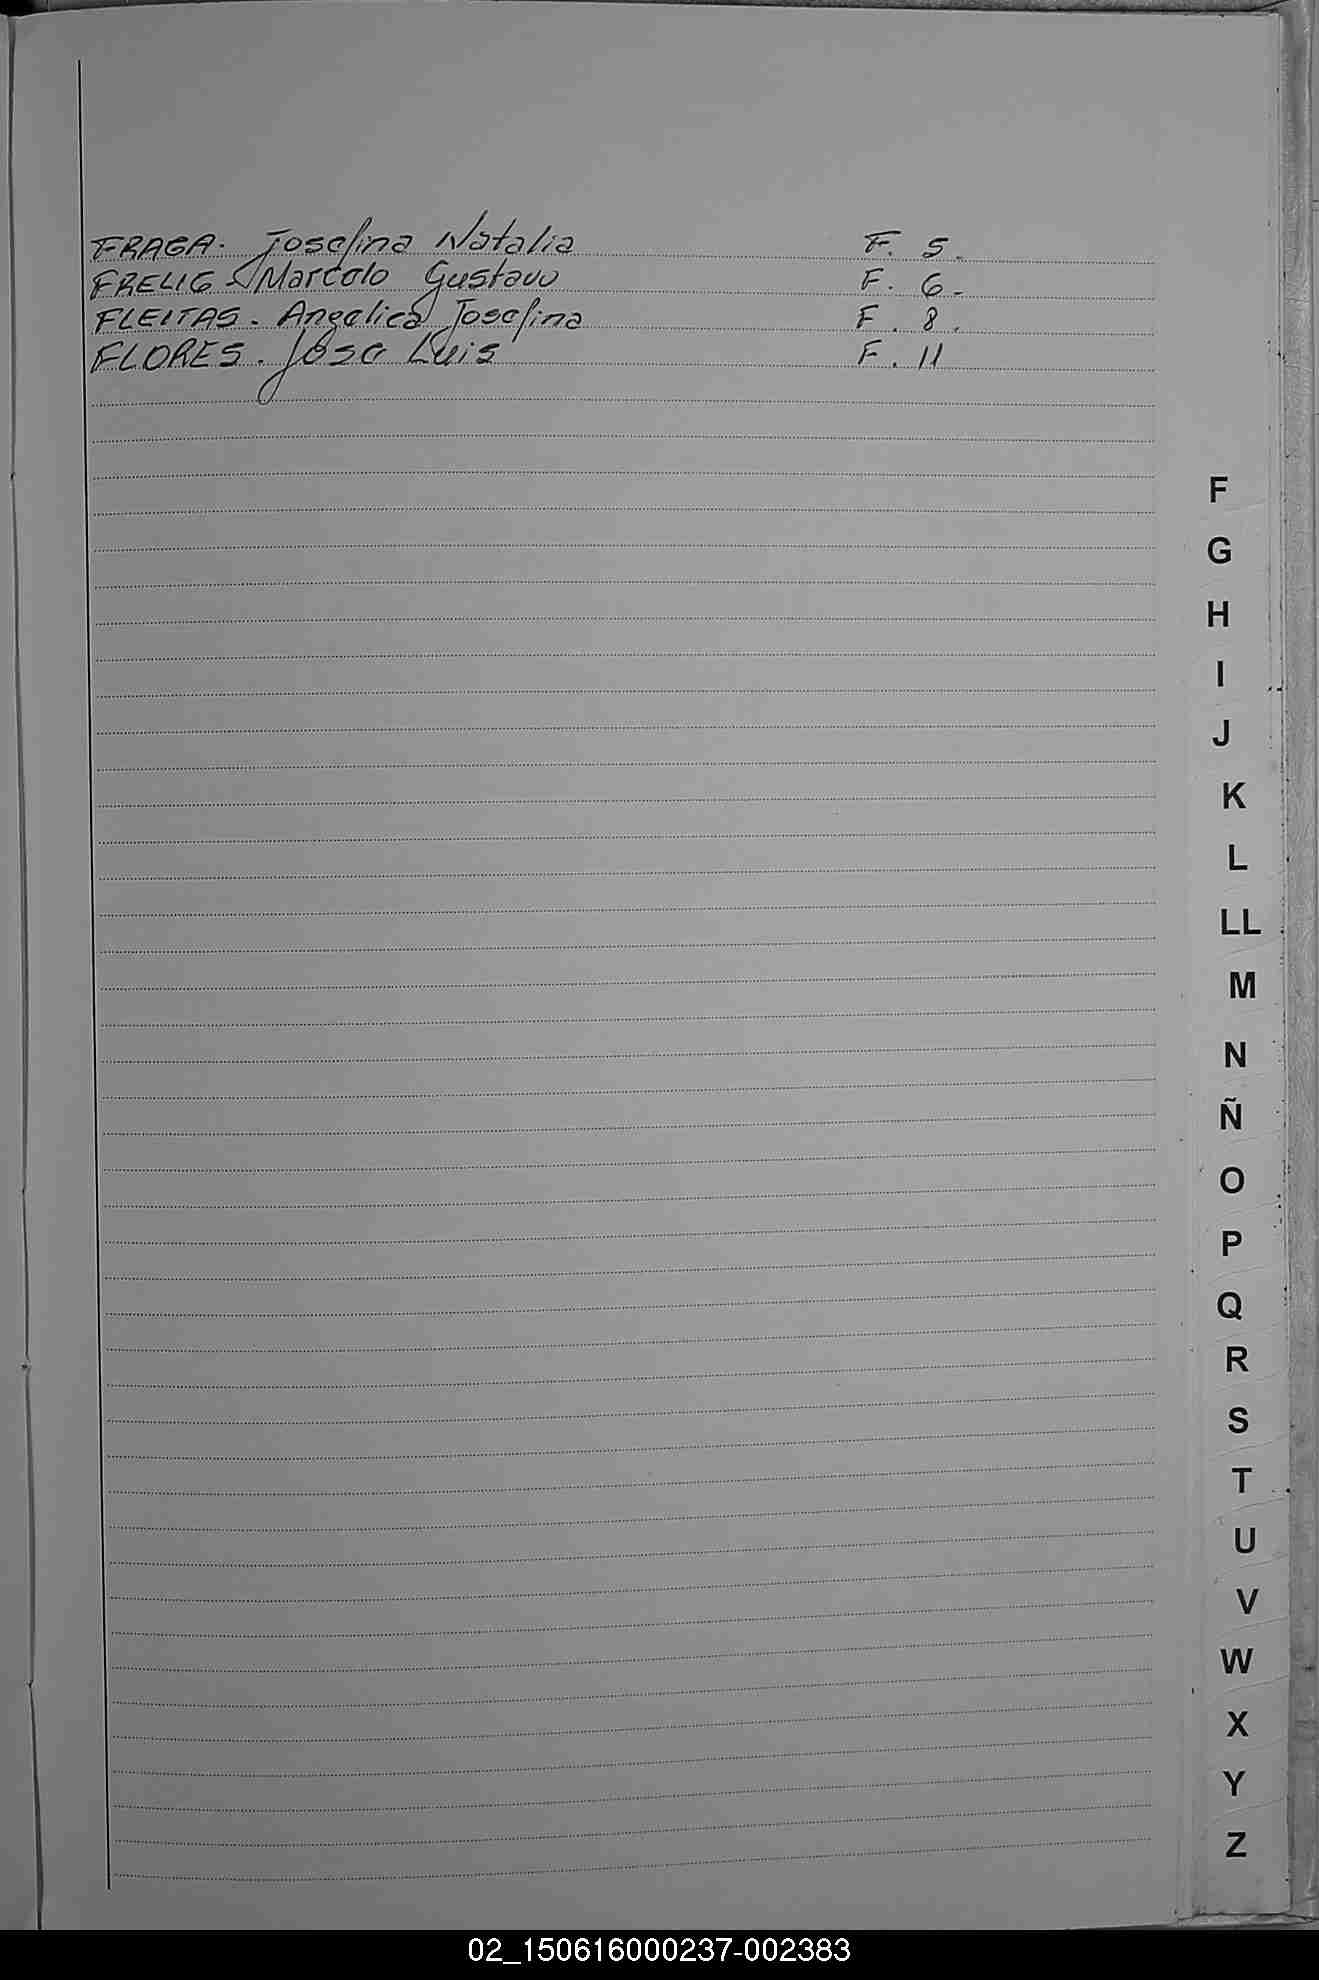 FRAGA. Josefina Natalia F. 5.
FRELIG - Marcelo Gustavo F. 6.
FLEITAS. Angelica Josefina F. 8.
FLORES. Jose Luis F. 11
F
G
H
I
J
K
L
LL
M
N
Ñ
O
P
Q
R
S
T
U
V
W
X
Y
Z
02_150616000237-002383